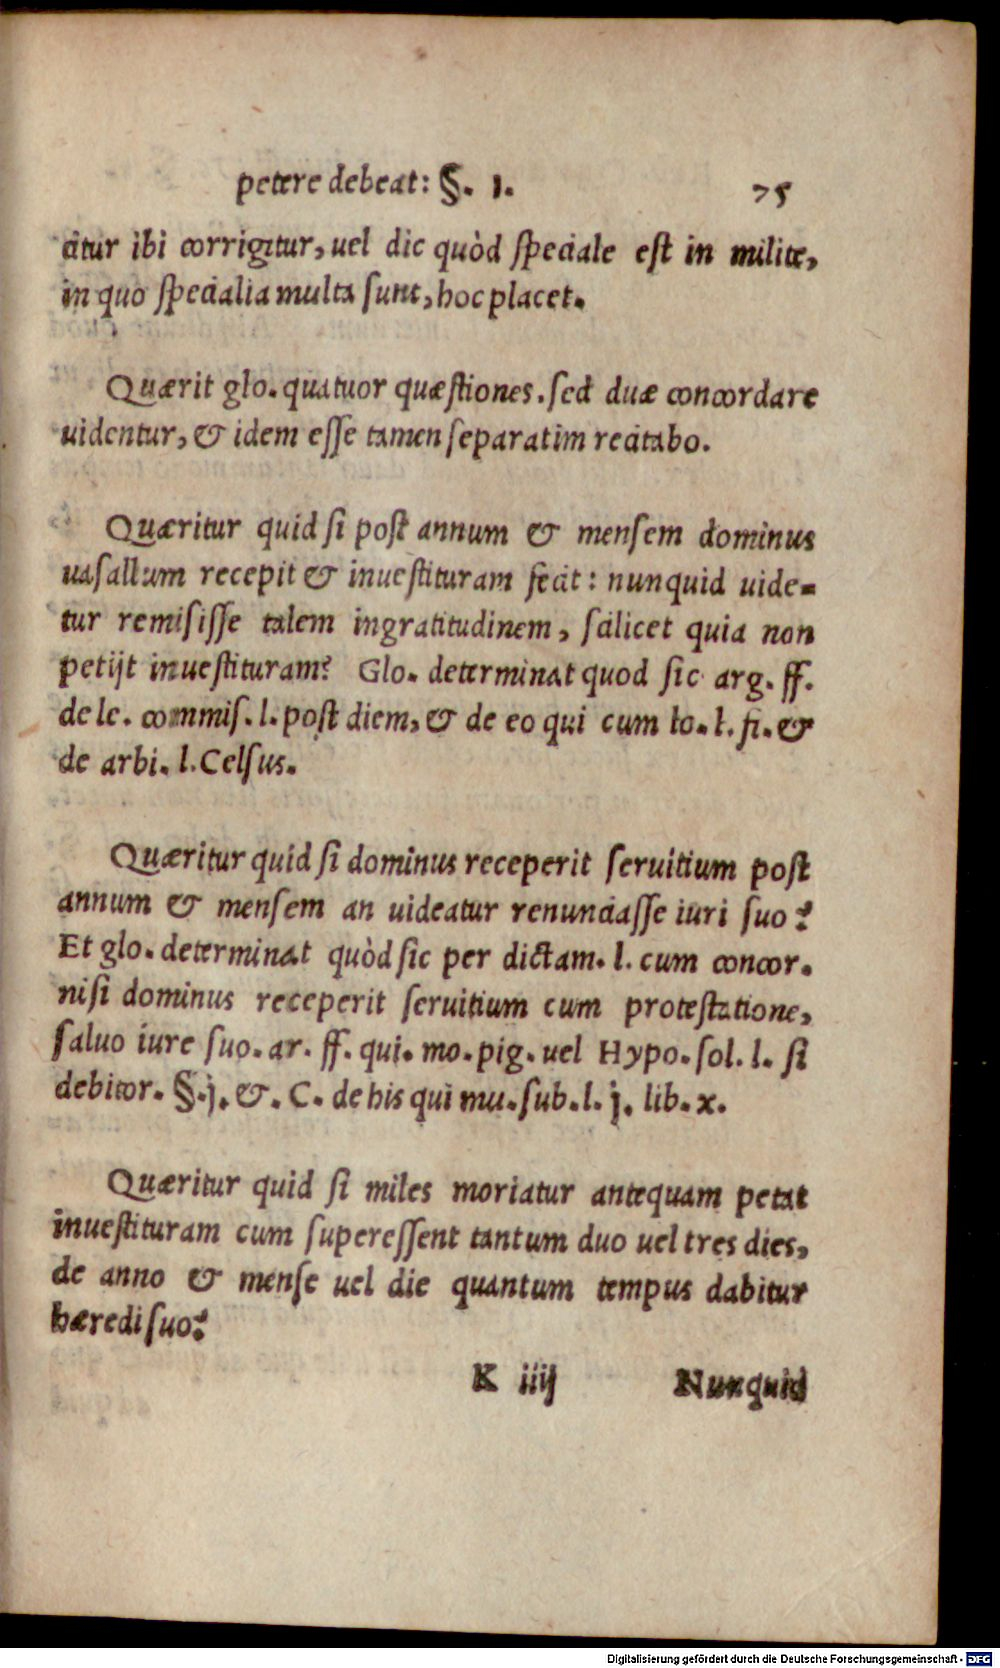 petere debeat: §. 1. 75
citur ibi corrigitur, uel dic quòd speciale est in milite,
in quo specialia multa sunt, hoc placet.
Quærit glo. quatuor quæstiones. sed duæ concordare
uidentur, & idem esse tamen separatim recitabo.
Quæritur quid si post annum & mensem dominus
uasallum recepit & inuestituram fecit: nunquid uide=
tur remisisse talem ingratitudinem, scilicet quia non
petijt inuestituram? Glo. determinat quod sic arg. ff.
de le. commis. l. post diem, & de eo qui cum lo. l. fi. &
de arbi. l. Celsus.
Quæritur quid si dominus receperit seruitium post
annum & mensem an uideatur renunciasse iuri suo?
Et glo. determinat quòd sic per dictam. l. cum concor.
nisi dominus receperit seruitium cum protestatione,
saluo iure suo. ar. ff. qui. mo. pig. uel Hypo. sol. l. si
debitor. §. j. &. C. de his qui mu. sub. l. j. lib. x.
Quæritur quid si miles moriatur antequam petat
inuestituram cum superessent tantum duo uel tres dies,
de anno & mense uel die quantum tempus dabitur
hæredi suo?
K iiij Nunquid
Digitalisierung gefördert durch die Deutsche Forschungsgemeinschaft - DFG